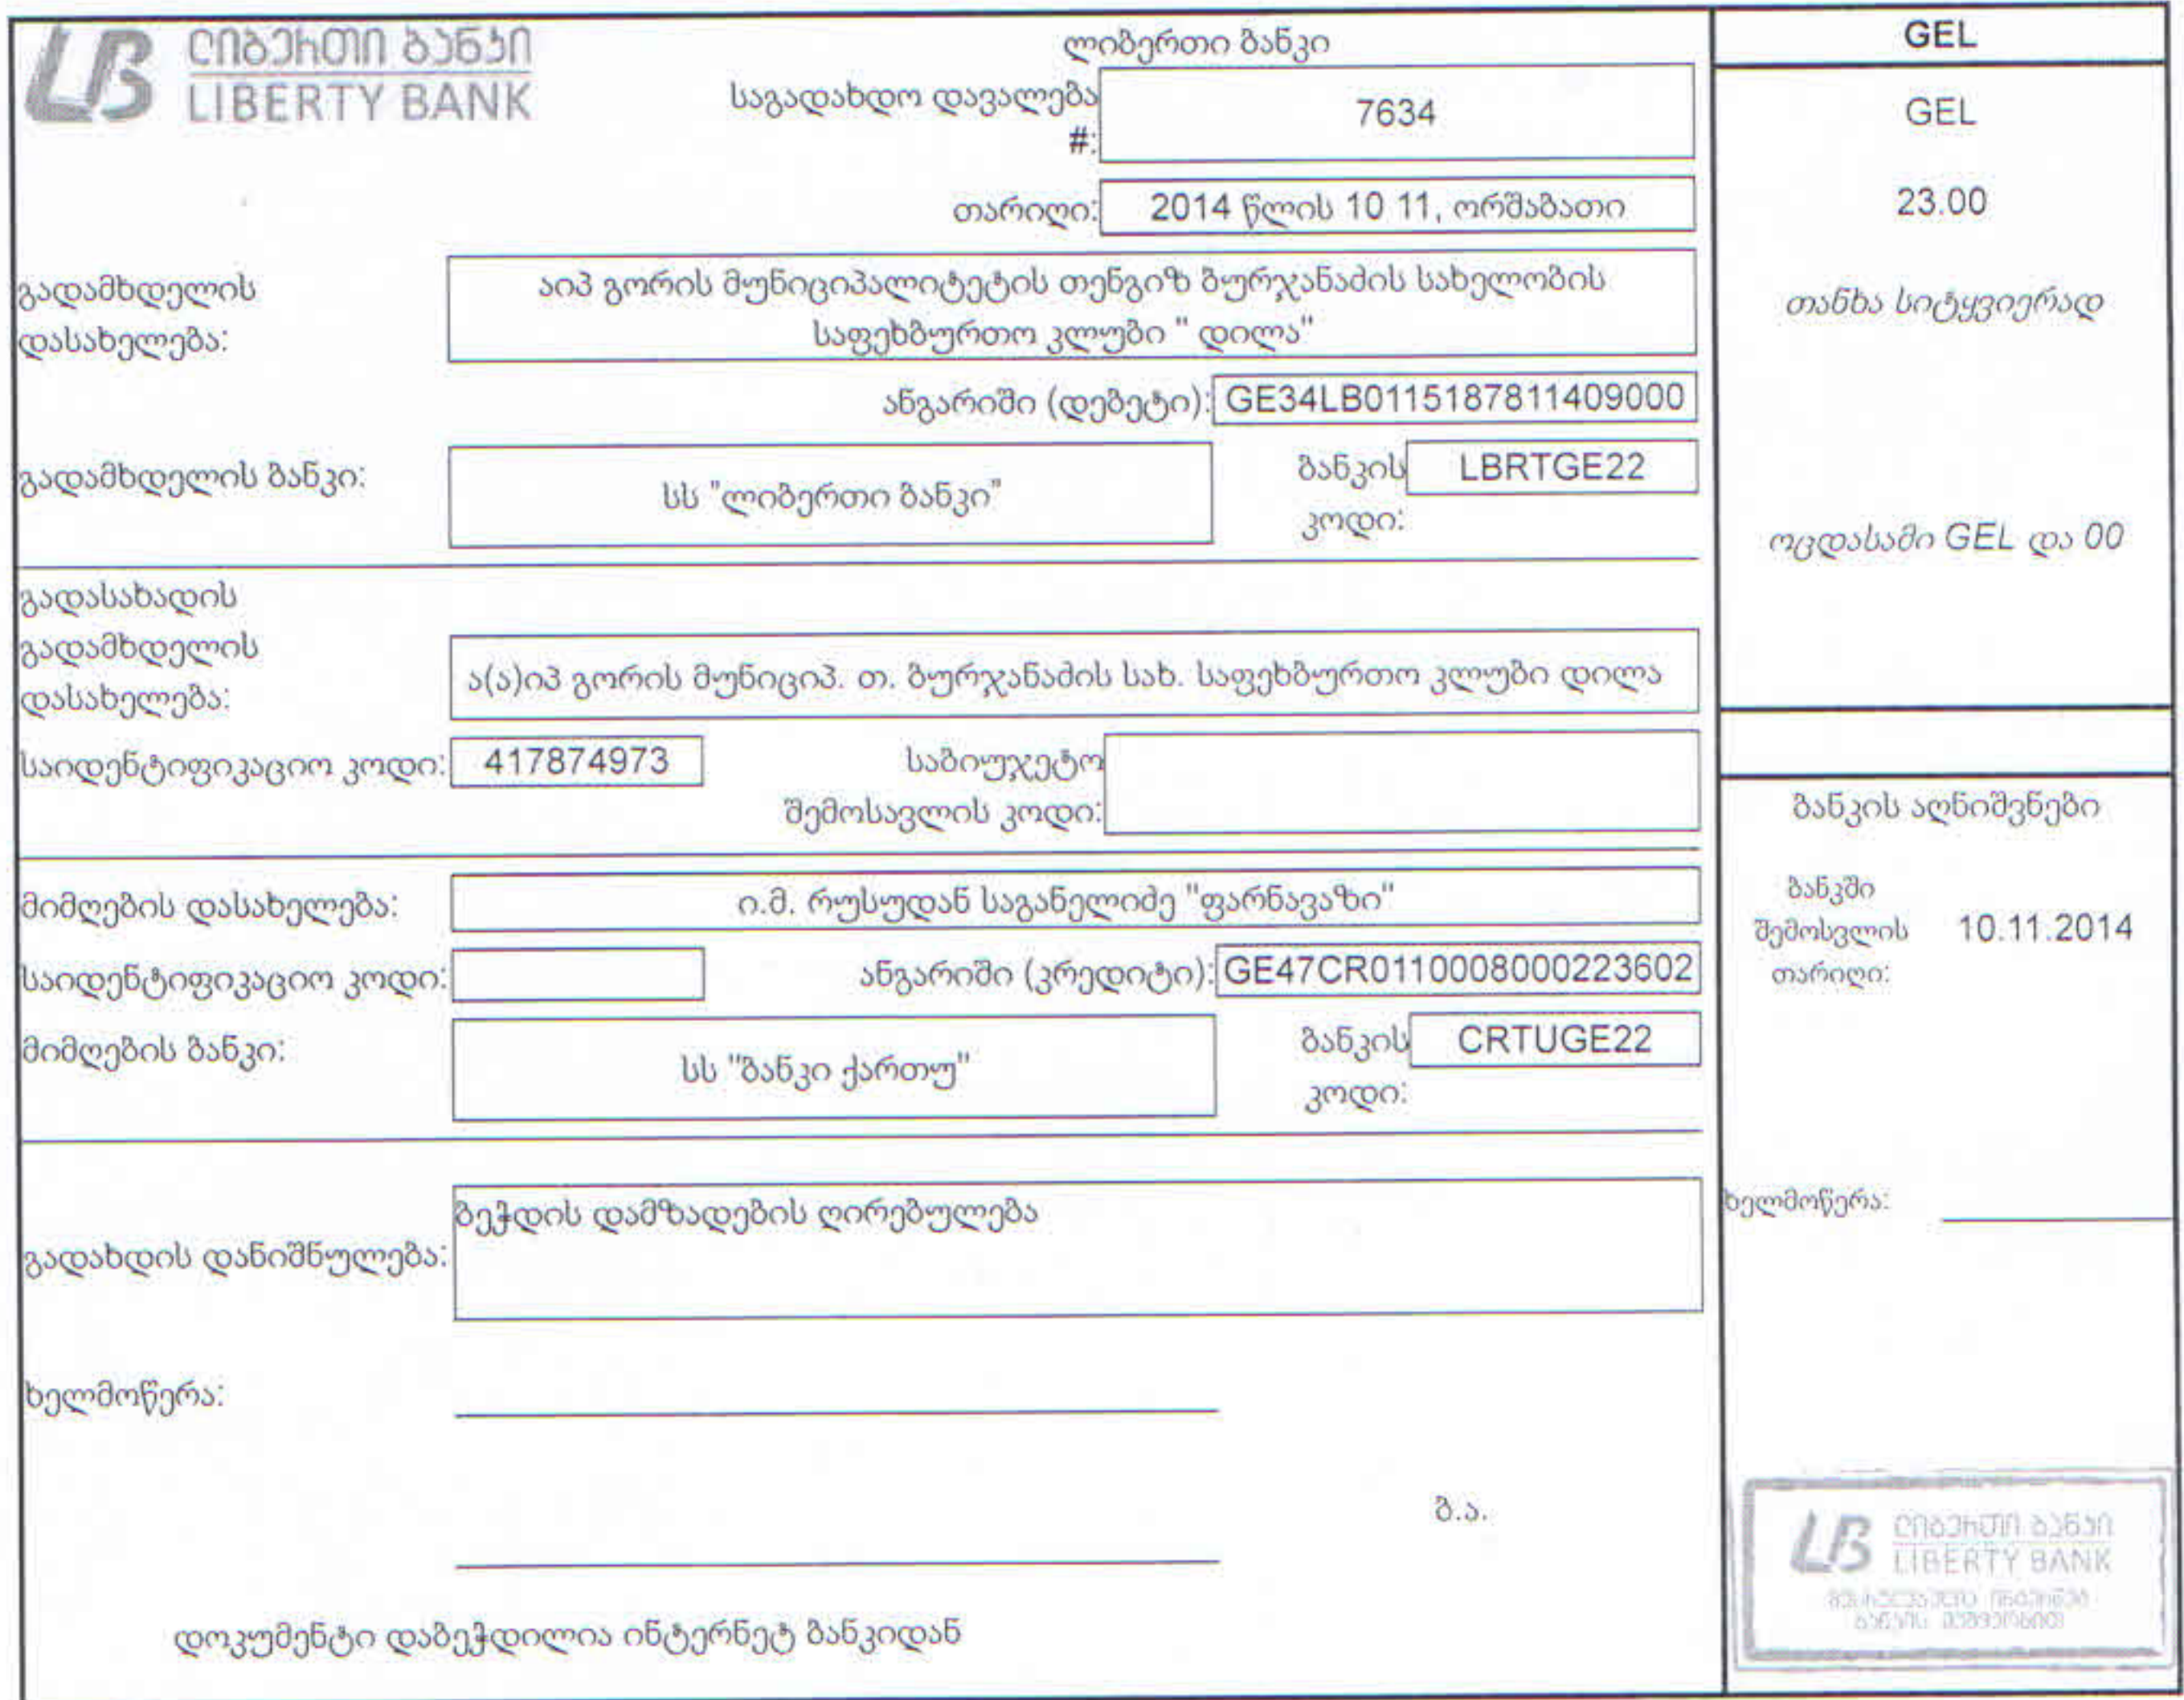 ლიბერთი ბანკი
LIBERTY BANK
ლიბერთი ბანკი
საგადახდო დავალება
#:
7634
თარიღი:
2014 წლის 10 11, ორშაბათი
გადამხდელის
დასახელება:
აიპ გორის მუნიციპალიტეტის თენგიზ ბურჯანაძის სახელობის
საფეხბურთო კლუბი " დილა"
ანგარიში (დებეტი):
GE34LB0115187811409000
გადამხდელის ბანკი:
სს "ლიბერთი ბანკი"
ბანკის
კოდი:
LBRTGE22
გადასახადის
გადამხდელის
დასახელება:
ა(ა)იპ გორის მუნიციპ. თ. ბურჯანაძის სახ. საფეხბურთო კლუბი დილა
საიდენტიფიკაციო კოდი:
417874973
საბიუჯეტო
შემოსავლის კოდი:
მიმღების დასახელება:
ი.მ. რუსუდან საგანელიძე "ფარნავაზი"
საიდენტიფიკაციო კოდი:
ანგარიში (კრედიტი):
GE47CR0110008000223602
მიმღების ბანკი:
სს "ბანკი ქართუ"
ბანკის
კოდი:
CRTUGE22
გადახდის დანიშნულება:
ბეჭდის დამზადების ღირებულება
ხელმოწერა:
ბ.ა.
დოკუმენტი დაბეჭდილია ინტერნეტ ბანკიდან
GEL
GEL
23.00
თანხა სიტყვიერად
ოცდასამი GEL და 00
ბანკის აღნიშვნები
ბანკში
შემოსვლის
თარიღი:
10.11.2014
ხელმოწერა:
ლიბერთი ბანკი
LIBERTY BANK
შესრულებულია ინტერნეტ
ბანკის მეშვეობით